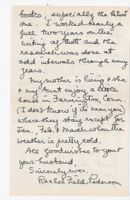 books, especially the latest
one. I worked nearly a
full two years on the
writing of that and the
research was done at
odd intervals through many
years.
My mother is living & she
& my Aunt enjoy a little
house in Farmington, Conn.
(I don't know if he met you)
where they stay except for
Jan. Feb & March when the
weather is pretty cold.
All good wishes to you &
your husband,
Sincerely ever
Rachel Field Pederson